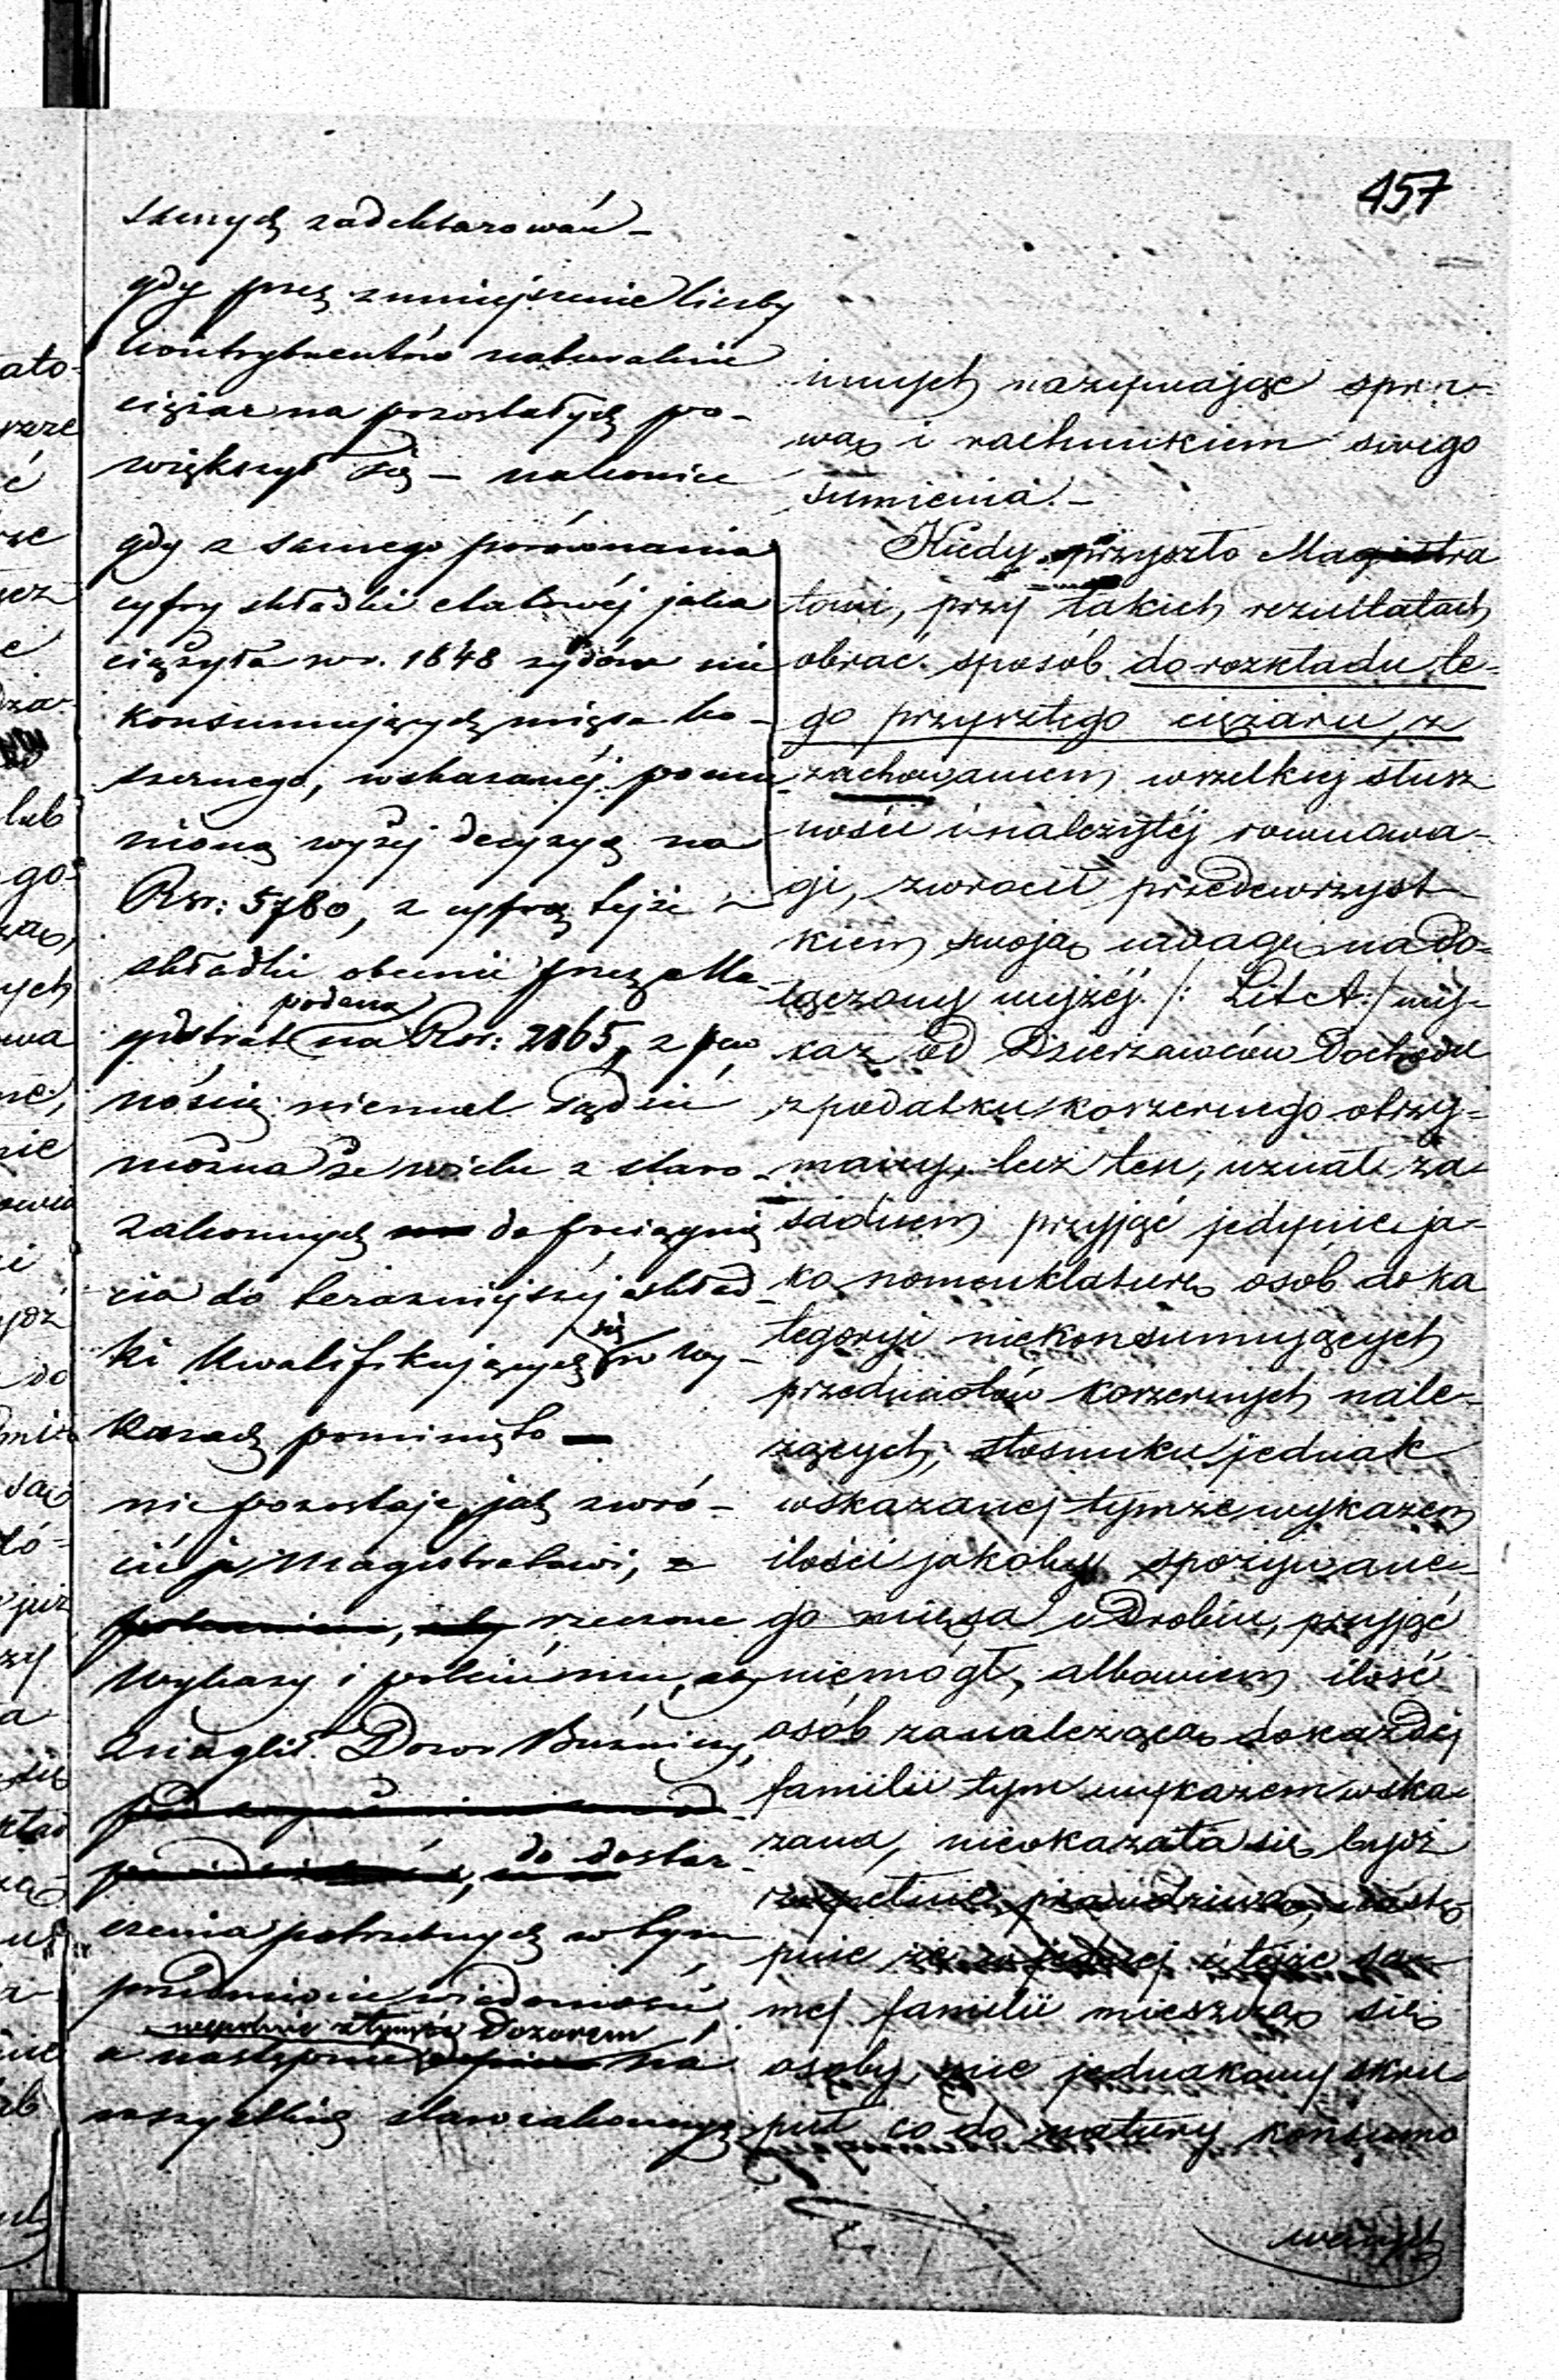 457
skuych zadeklarowań –
gdy przez zmniejszenie liczby
kontrybuentów naturalnie
ciężar na pozostałych po-
większył się – nakoniec
gdy z samego porównania
cyfry składki etatowéj jaka
ciążyła w r. 1848 żydów nie
konsumujących mięsa ko-
szernego, wskazanéj pomie
nioną wyżej decyzyą na
Rsr: 5780, z cyfrą tejże
składki obecnie przez Ma-
gistrat podaną na Rsr: 2865, z pew
nością niemal sądzić
można że wielu z staro
zakonnych do pociągnię
cia do teraźniejszej skład
ki kwalifikujących się w wy-
kazach pominięto –
nie pozostaje jak zwró-
cić je Magistratowi, z
rzeczone
wykazy i polecić mu, aby
znaglił Dozór Bóżniczy,
do dostar-
czenia potrzebnych w tym
przedmiocie wiadomości
wespólnie z tymże Dozorem
a następnie na
wszystkich starozakonnych
innych nazywając spra-
wą i rachunkiem swego
sumienia. –
Kiedy przyszło Magistra
towi, przy takich rezultatach
obrać sposób do rozkładu te-
go przyszłego ciężaru, z
zachowaniem wszelkiej słusz
ności i należytéj rownowa-
gi, zwrocił przedewszyst-
kiem swoją uwagę na do-
łączony wyżéj /: Lit A :/ wy-
kaz od Dzierzawców Dochodu
z podatku koszernego otrzy-
many, lecz ten, uznał za
sadnem przyjąć jedynie ja-
ko nomenklaturę osób do ka
tegoryi niekonsumujących
przedmiotów koszernych nale-
żących, stosunku jednak
wskazanej tymże wykazem
ilości jakoby spożywane-
go mięsa i Drobiu, przyjąć
niemógł, albowiem ilość
osób zanależącą do każdej
familii tym wykazem wska-
zana, nieokazała się bydź
zupełnie prawdziwą, nastę
pnie że w jednej i tejże sa-
mej familii mieszczą się
osoby, nie jednakowy skru-
puł co do natury konsumo
wanych